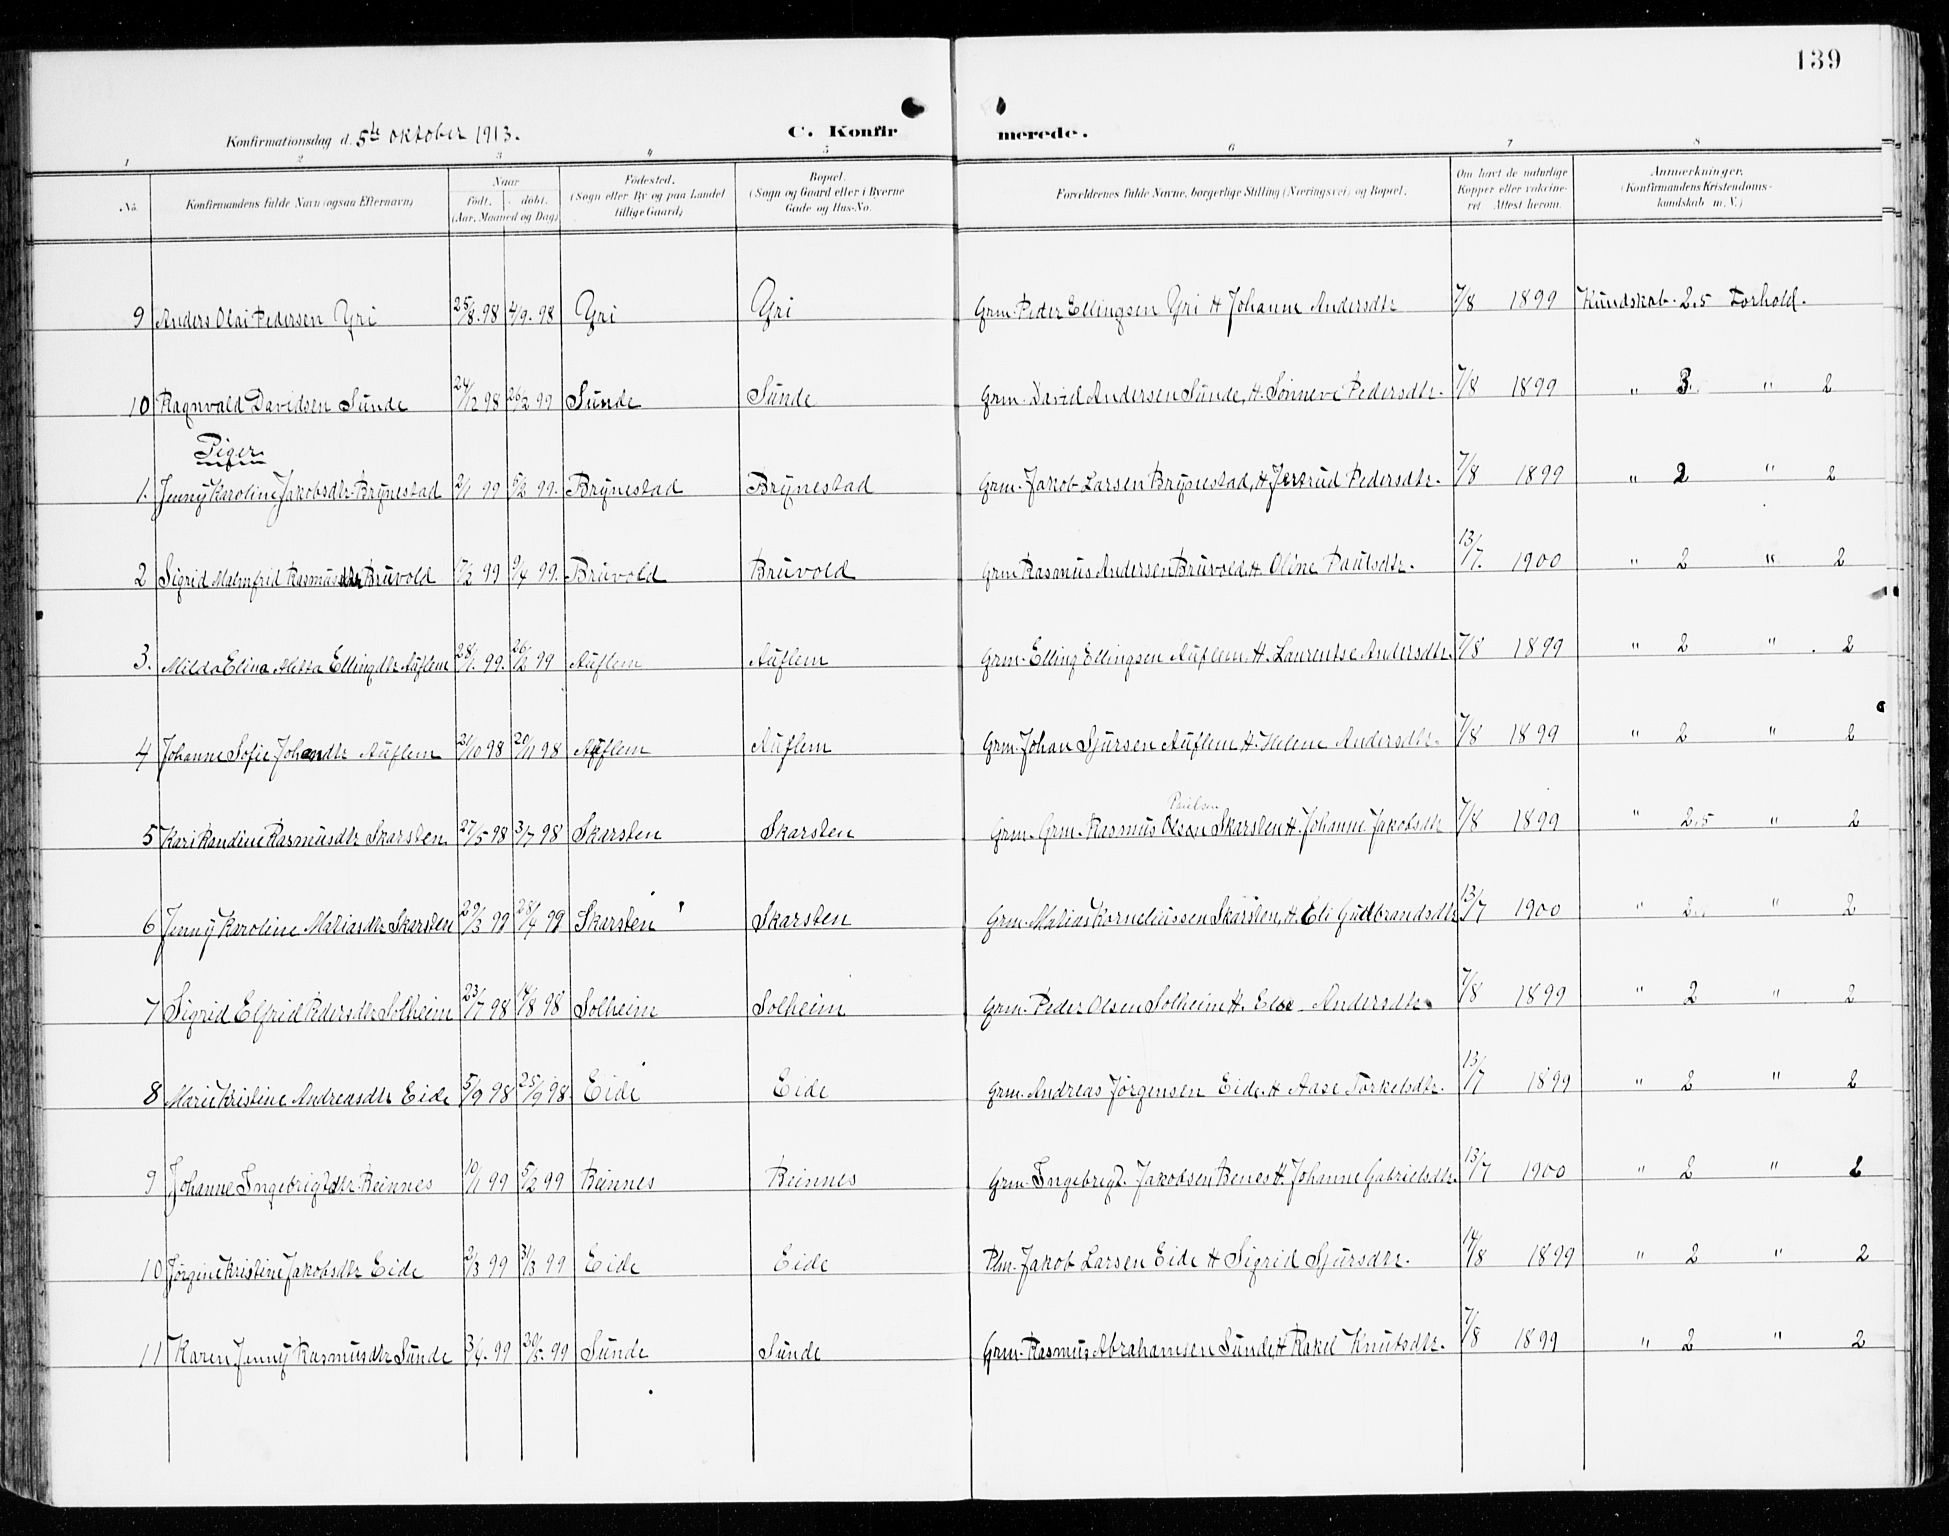 139
Konfirmationsdag d. 5te oktober 1913. C. Konfirmerede.
1 2 3 4 5 6 7 8
No. Konfirmandens fulde Navn (ogsaa Efternavn) Naar født. døbt. (Aar, Maaned og Dag) Fødested. (Sogn eller By og paa Landet tillige Gaard) Bopæl. (Sogn og Gaard eller i Byerne Gade og Hus-No. Forældrenes fulde Navne, borgerlige Stilling (Næringsvei) og Bopæl. Om havt de naturlige Kopper eller vakcineret Attest herom. Anmærkninger. (Konfirmandens Kristendomskundskab m. V.)
9 Anders Olai Pedersen Yri 25/8. 98 4/9. 98 Yri Yri Grm. Peder Ellingsen Yri H Johanne Andersdtr 7/8 1899 Kundskab. 2.5 Forhold.
10 Ragnvald Davidsen Sunde 24/12 98 26/2 99 Sunde Sunde Grm. David Andersen Sunde, H. Sønneve Pedersdtr. 7/8 1899 " 3. " 2
Piger
1. Jenny Karoline Jakobsdtr. Brynestad 2/1 99 5/2 99. Brynestad Brynestad Grm. Jakob Larsen Brynestad, H Jertrud Pedersdtr. 7/8 1899 " 2 " 2
2 Sigrid Malmfrid Rasmusdtr Bruvold 17/2 99 9/4 99. Bruvold Bruvold Grm Rasmus Andersen Bruvold, H. Oline Paulsdtr. 13/7. 1900 " 2 " 2
3. Milda Elina Mette Ellingdtr Auflem 28/1 99. 26/2 99 Auflem Auflem Grm. Elling Ellingsen Auflem, H. Laurentse Andersdtr. 7/8 1899 " 2 " 2
4 Johanne Sofie Johandtr Auflem 31/10 98 20/11 98 Auflem Auflem Grm. Johan Sjursen Auflem H. Helene Andersdtr. 7/8 1899 " 2 " 2
5 Kari Randine Rasmusdtr Skarsten 27/5 98 3/7 98 Skarsten Skarsten Grm. Grm. Rasmus Olsen Skarsten H. Johanne Jakobsdtr 7/8 1899 " 2.5 " 2
Paulsen
6 Jenny Karoline Matiasdtr Skarsten 29/3 99 28/4 99 Skarsten Skarsten Grm. Matias Korneliussen Skarsten, H. Eli Gudbrandsdtr 13/7 1900 " 2. " 2
7 Sigrid Elfrid Pedersdtr Solheim 23/7 98 14/8 98 Solheim Solheim Grm. Peder Olsen Solheim H. Else Andersdtr. 7/8 1899 " 2 " 2
8 Marie Kristine Andreasdtr Eide 5/9 98 25/9 98. Eide Eide Grm. Andreas Jørgensen Eide. H Aase Torkelsdtr. 13/7 1899 " 2 " 2
9 Johanne Ingebrigtdtr. Reinnes 10/1 99 5/2 99 Reinnes Reinnes Grm. Ingebrigt Jakobsen Renes H. Johanne Gabrielsdtr. 13/7 1900 " 2 " 2
10 Jørgine Kristine Jakobsdtr Eide 2/3 99 31/3 99 Eide Eide Plm. Jakob Larsen Eide H Sigrid Sjursdtr. 14/8 1899 " 2 " 2
11 Karen Jenny Rasmusdtr Sunde 3/4. 99 30/5. 99 Sunde Sunde Grm. Rasmus Abrahamsen Sunde, H Rakel Knutsdtr. 7/8 1899 " 2 " 2